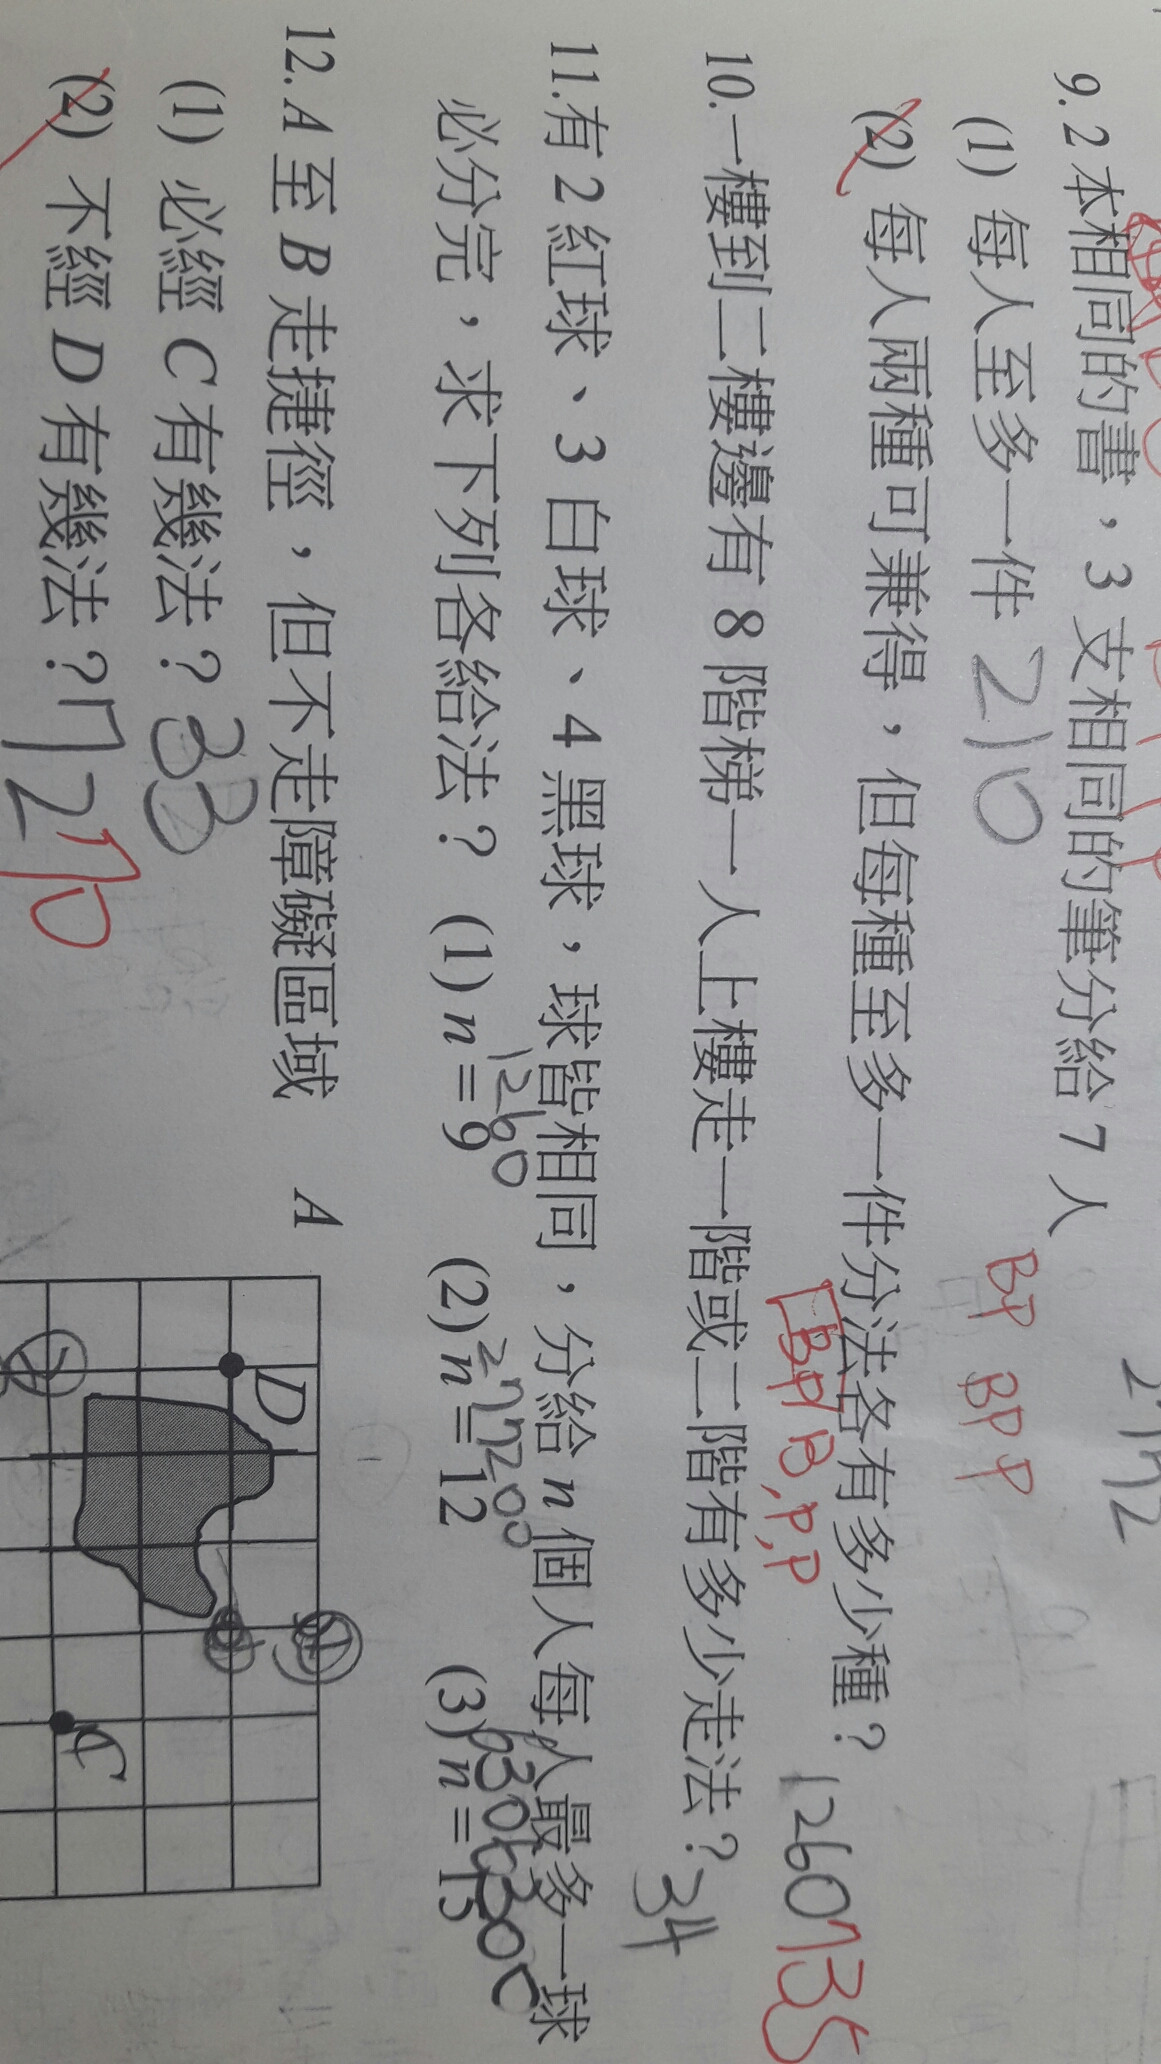 9. 2 本相同的書，3 支相同的筆分給 7 人
(1) 每人至多一件 210
BP BPP
(2) 每人兩種可兼得，但每種至多一件分法各有多少種？ 1260 735
BP/B,P,P
10. 一樓到二樓邊有 8 階梯一人上樓走一階或二階有多少走法？ 34
11. 有 2 紅球、3 白球、4 黑球，球皆相同，分給 n 個人每人最多一球
必分完，求下列各給法？ (1) n = 9 (2) n = 12 (3) n = 15
1260 277200
12. A 至 B 走捷徑，但不走障礙區域
(1) 必經 C 有幾法？ 33
(2) 不經 D 有幾法？
A
D
C